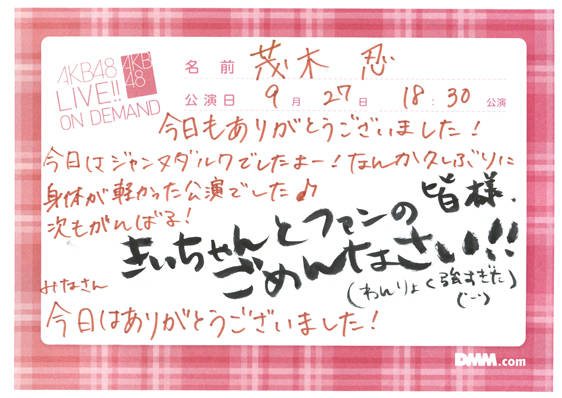 AKB48
LIVE!!
ON DEMAND
AKB
48
名前 茂木 忍
公演日 9月27日 18:30 公演
今日もありがとうございました!
今日はジャンヌダルクでしたよー!なんか久しぶりに
身体が軽かった公演でした♪
次もがんばる!
きいちゃんとファンの皆様、
ごめんなさい!!
(わんりょく強すぎた)
(´・・`)
みなさん
今日はありがとうございました!
DMM.com